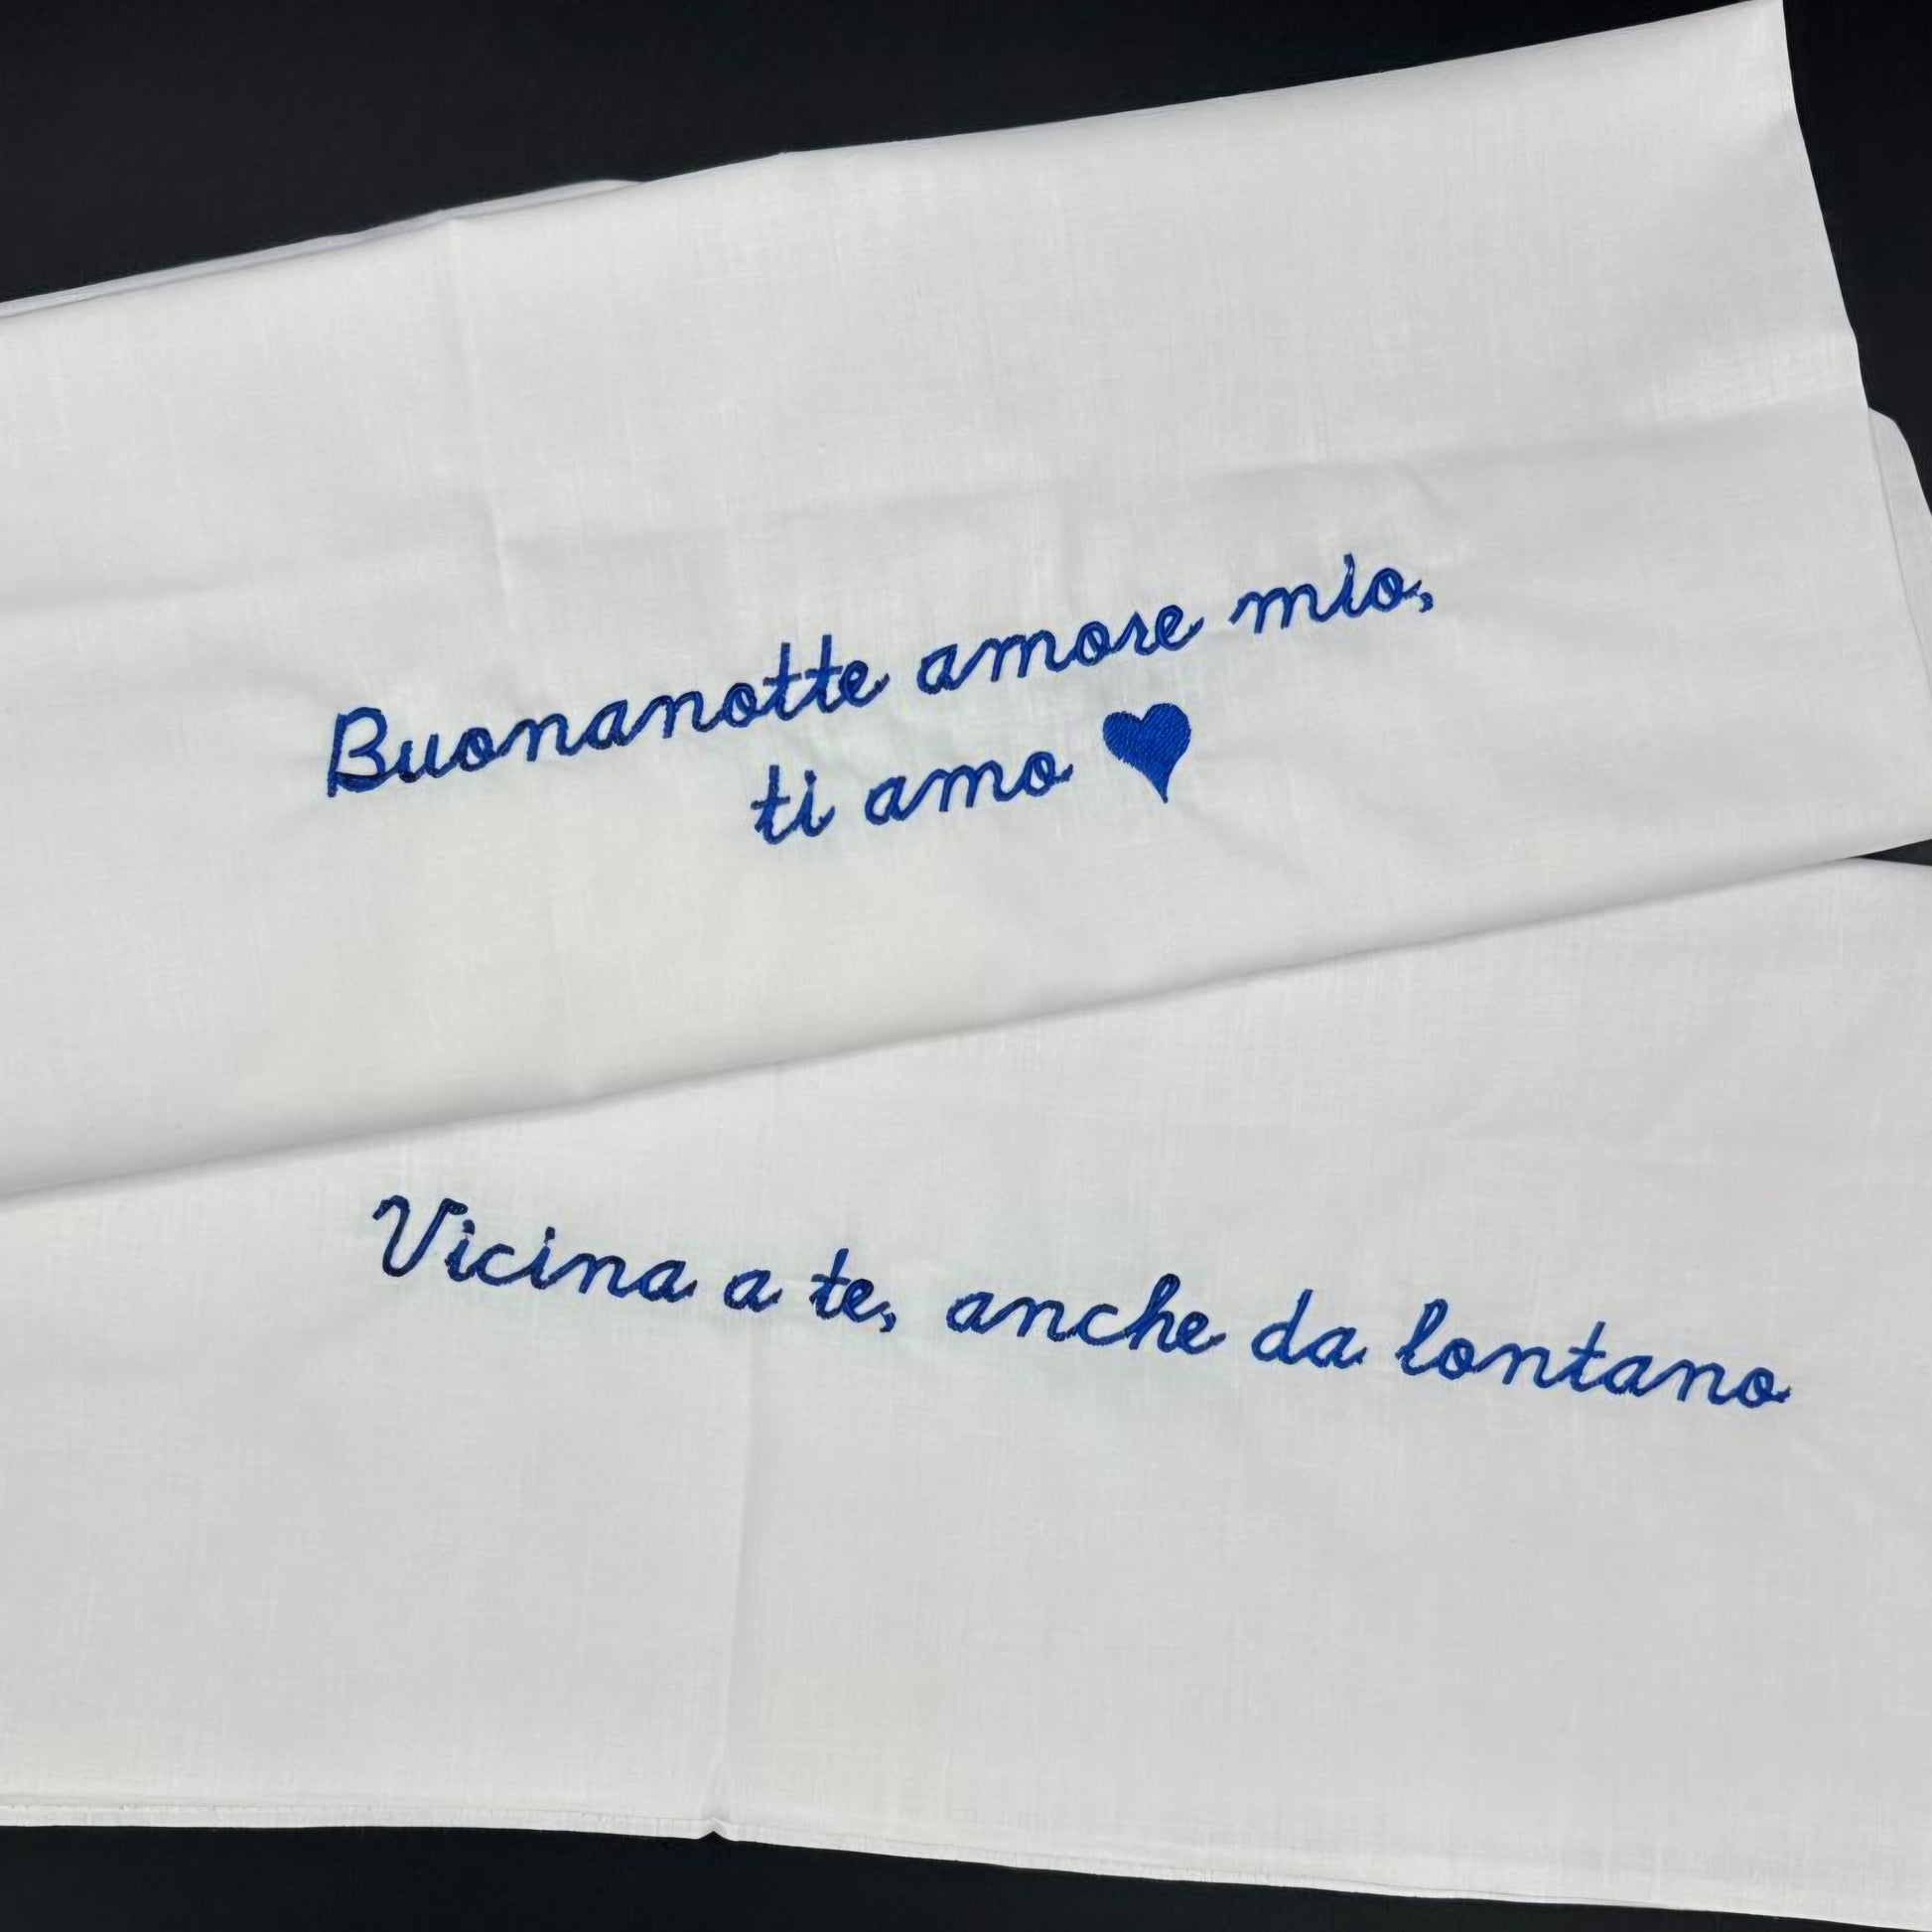 Buonanotte amore mio,
ti amo ♥
Vicina a te, anche da lontano